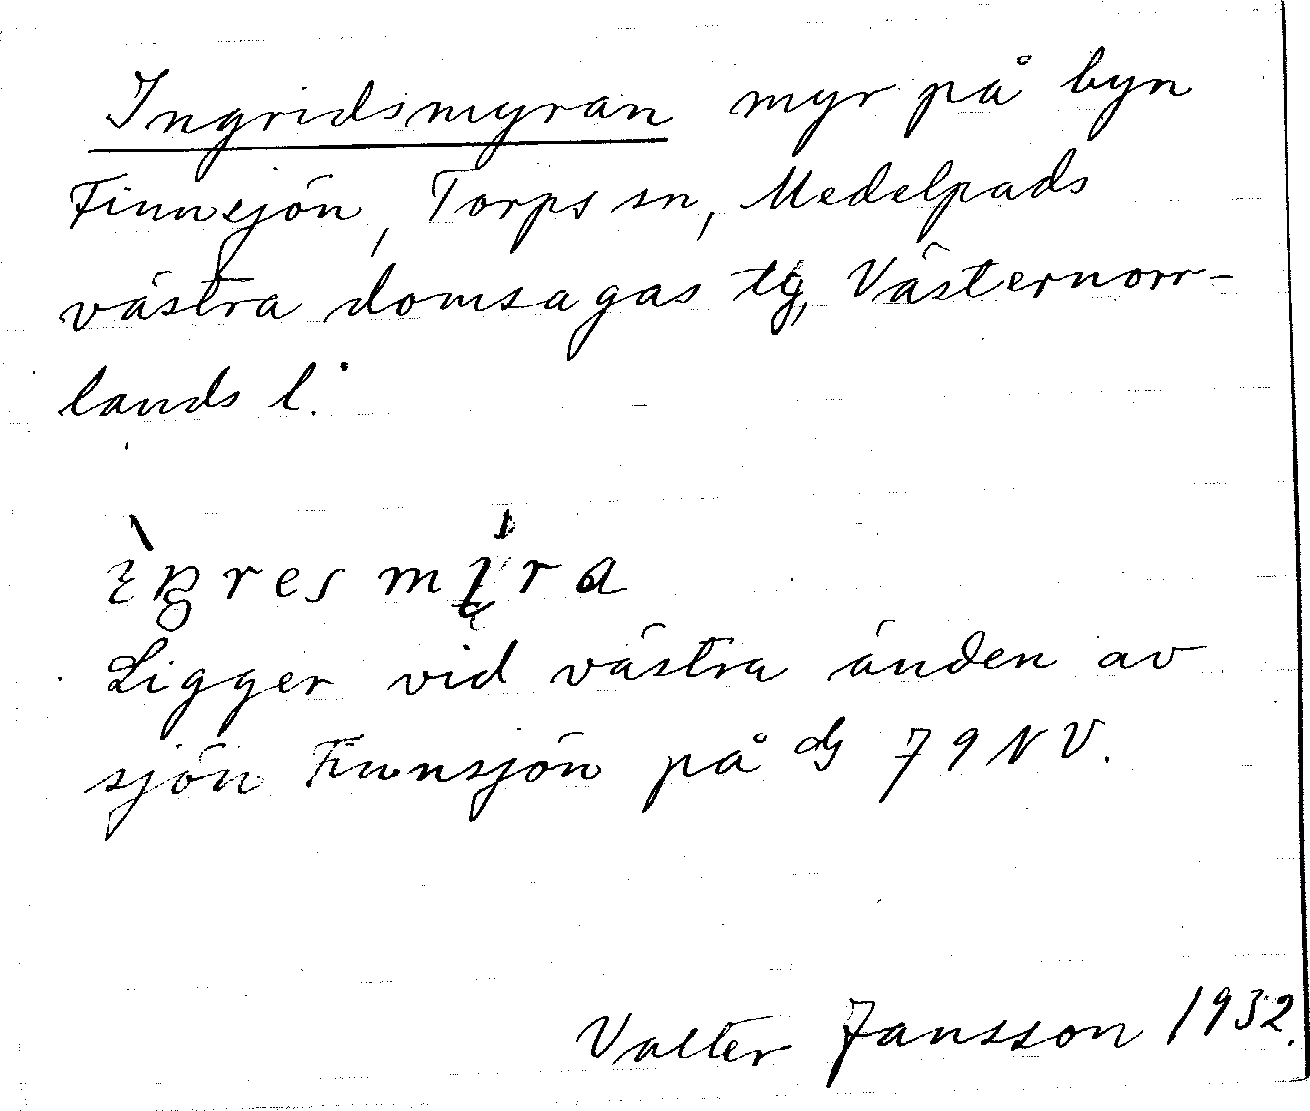 Ingridsmyran myr på byn
Finnsjön, Torps sn, Medelpads
västra domsagas tg, Västernorr-
lands l.
Ligger vid västra änden av
sjön Finnsjön på 79 NV.
Valter Jansson 1932.